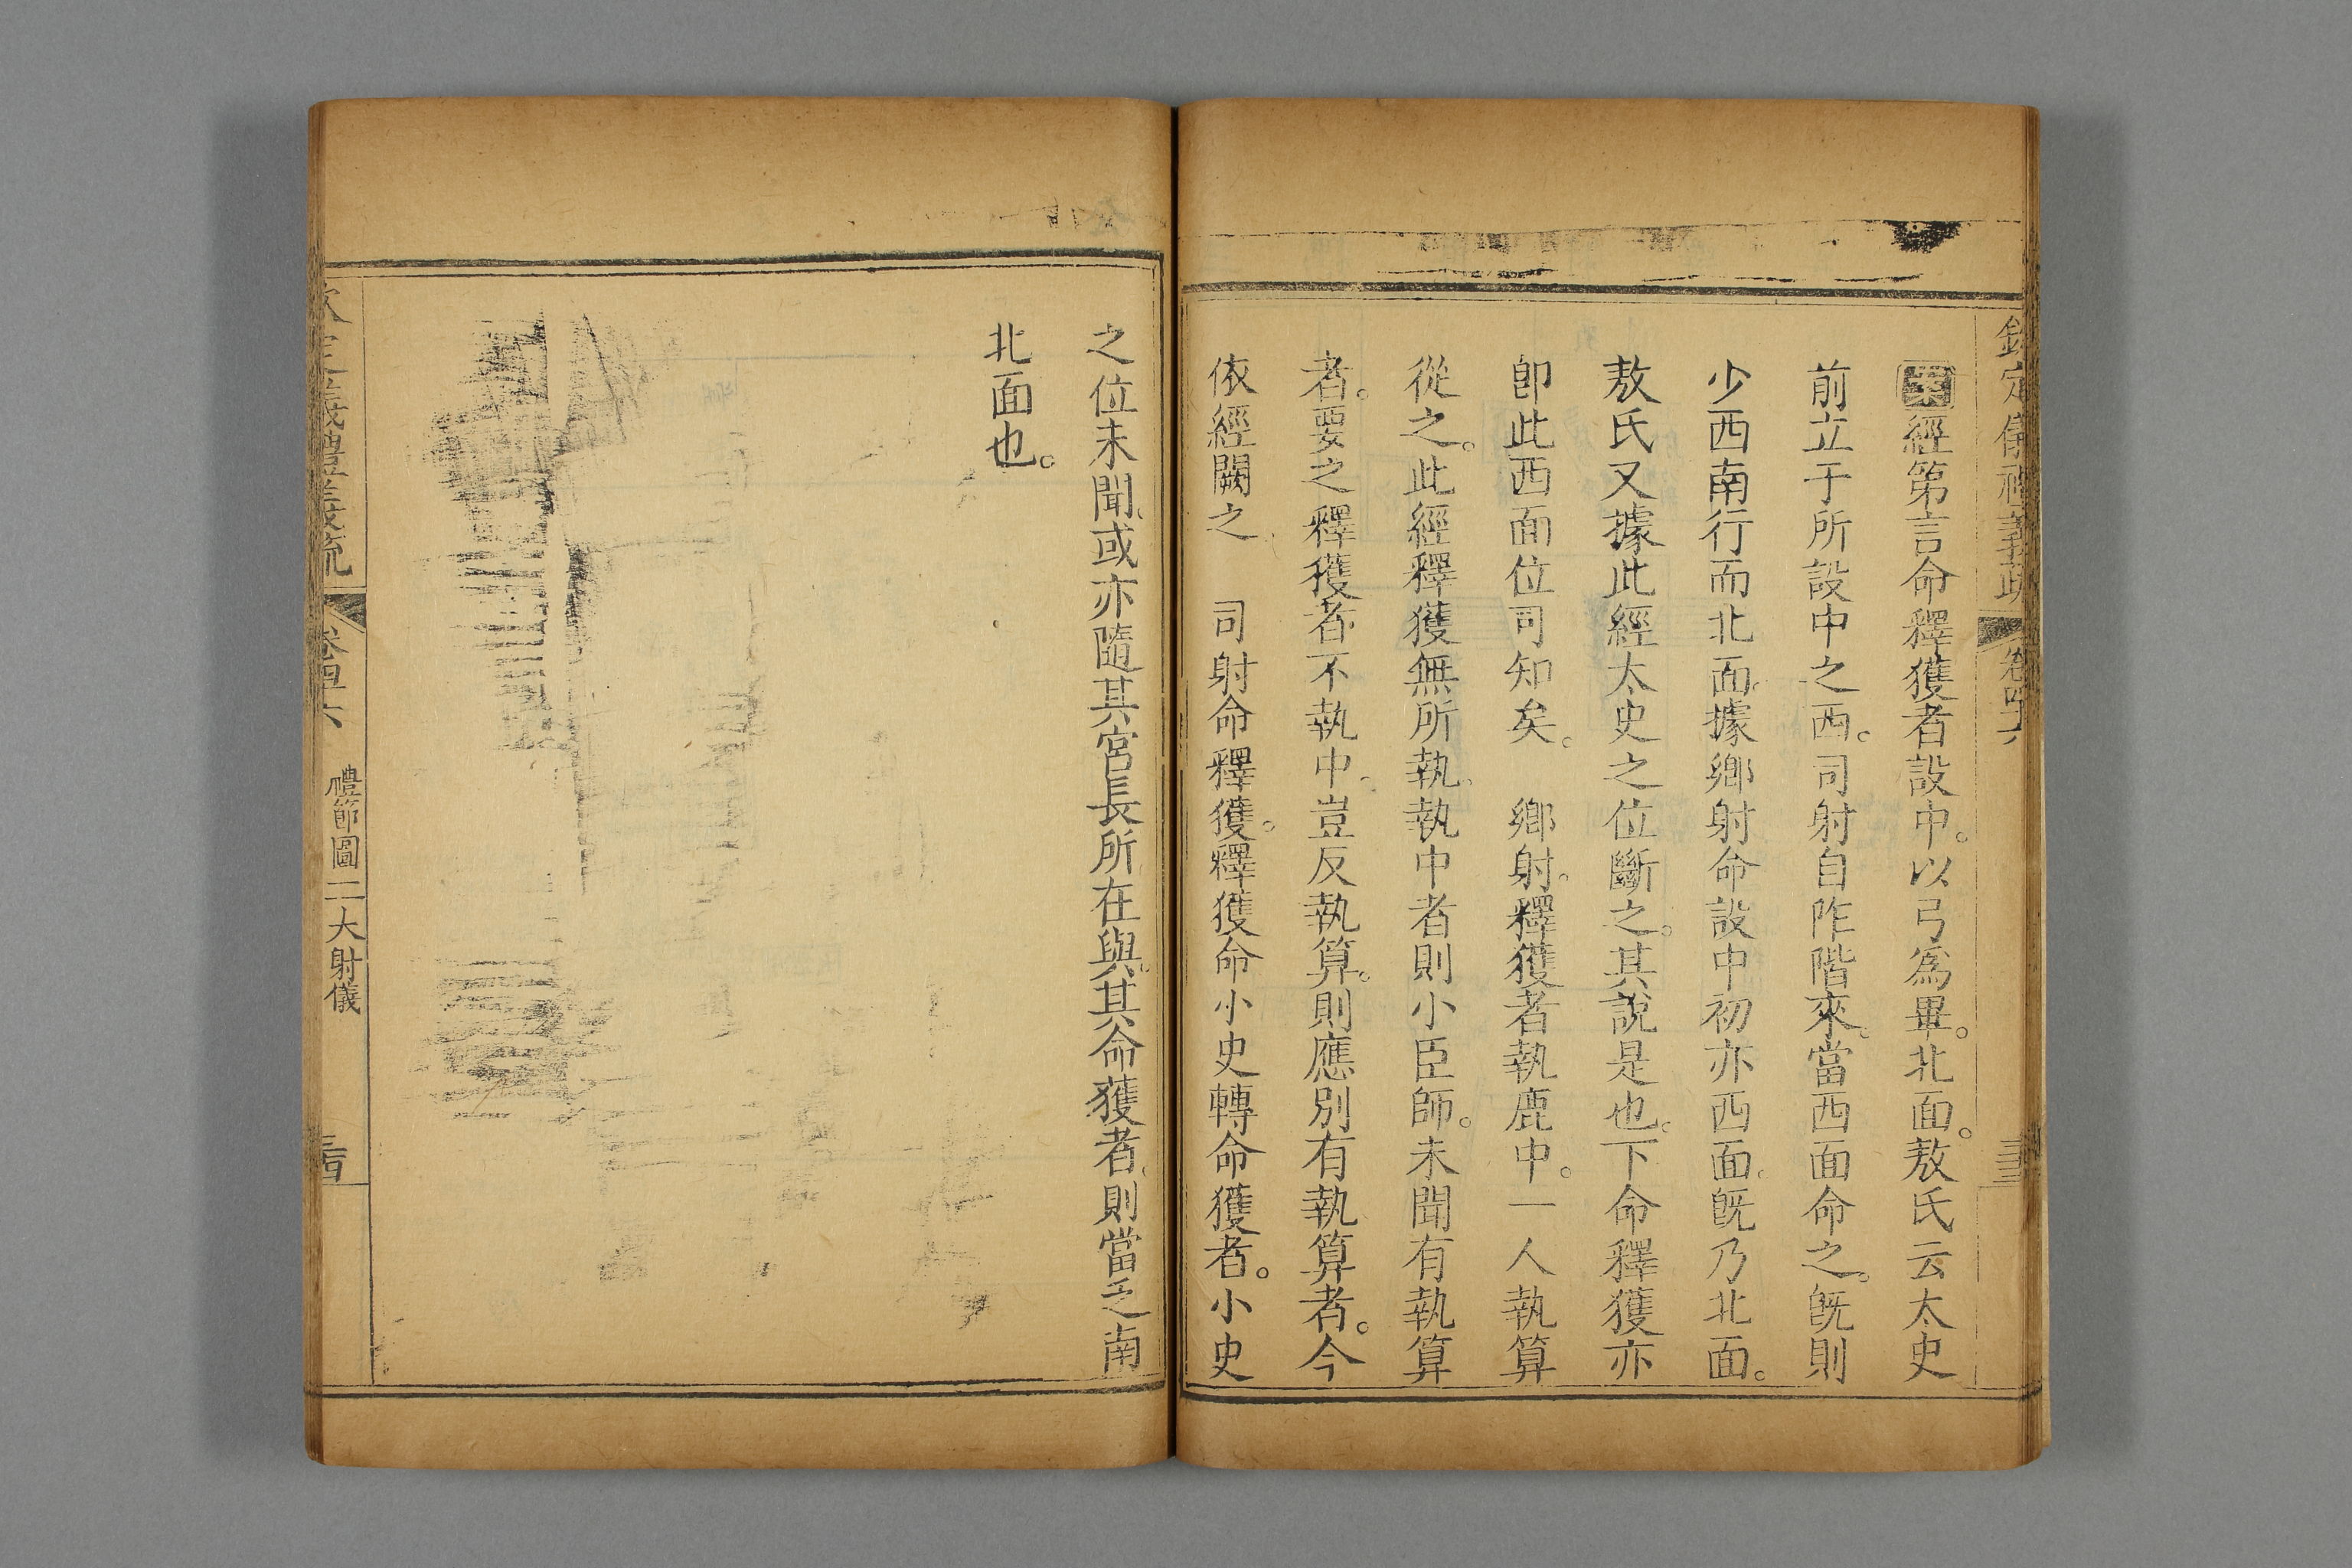 欽定儀禮義疏 卷四十六 三三
案經第言命釋獲者設中。以弓爲畢。北面。敖氏云太史
前立于所設中之西。司射自阼階來。當西面命之。旣則
少西南行而北面。據鄉射命設中初亦西面。旣乃北面。
敖氏又據此經太史之位斷之。其說是也。下命釋獲亦
卽此西面位司知矣。 鄉射。釋獲者執鹿中。一人執算
從之。此經釋獲無所執。執中者則小臣師。未聞有執算
者。要之釋獲者不執中。豈反執算。則應別有執算者。今
依經闕之 司射命釋獲。釋獲命小史轉命獲者。小史
之位未聞。或亦隨其官長所在與。其命獲者。則當乏南
北面也。
欽定儀禮義疏 卷四十六 禮節圖二大射儀 三四